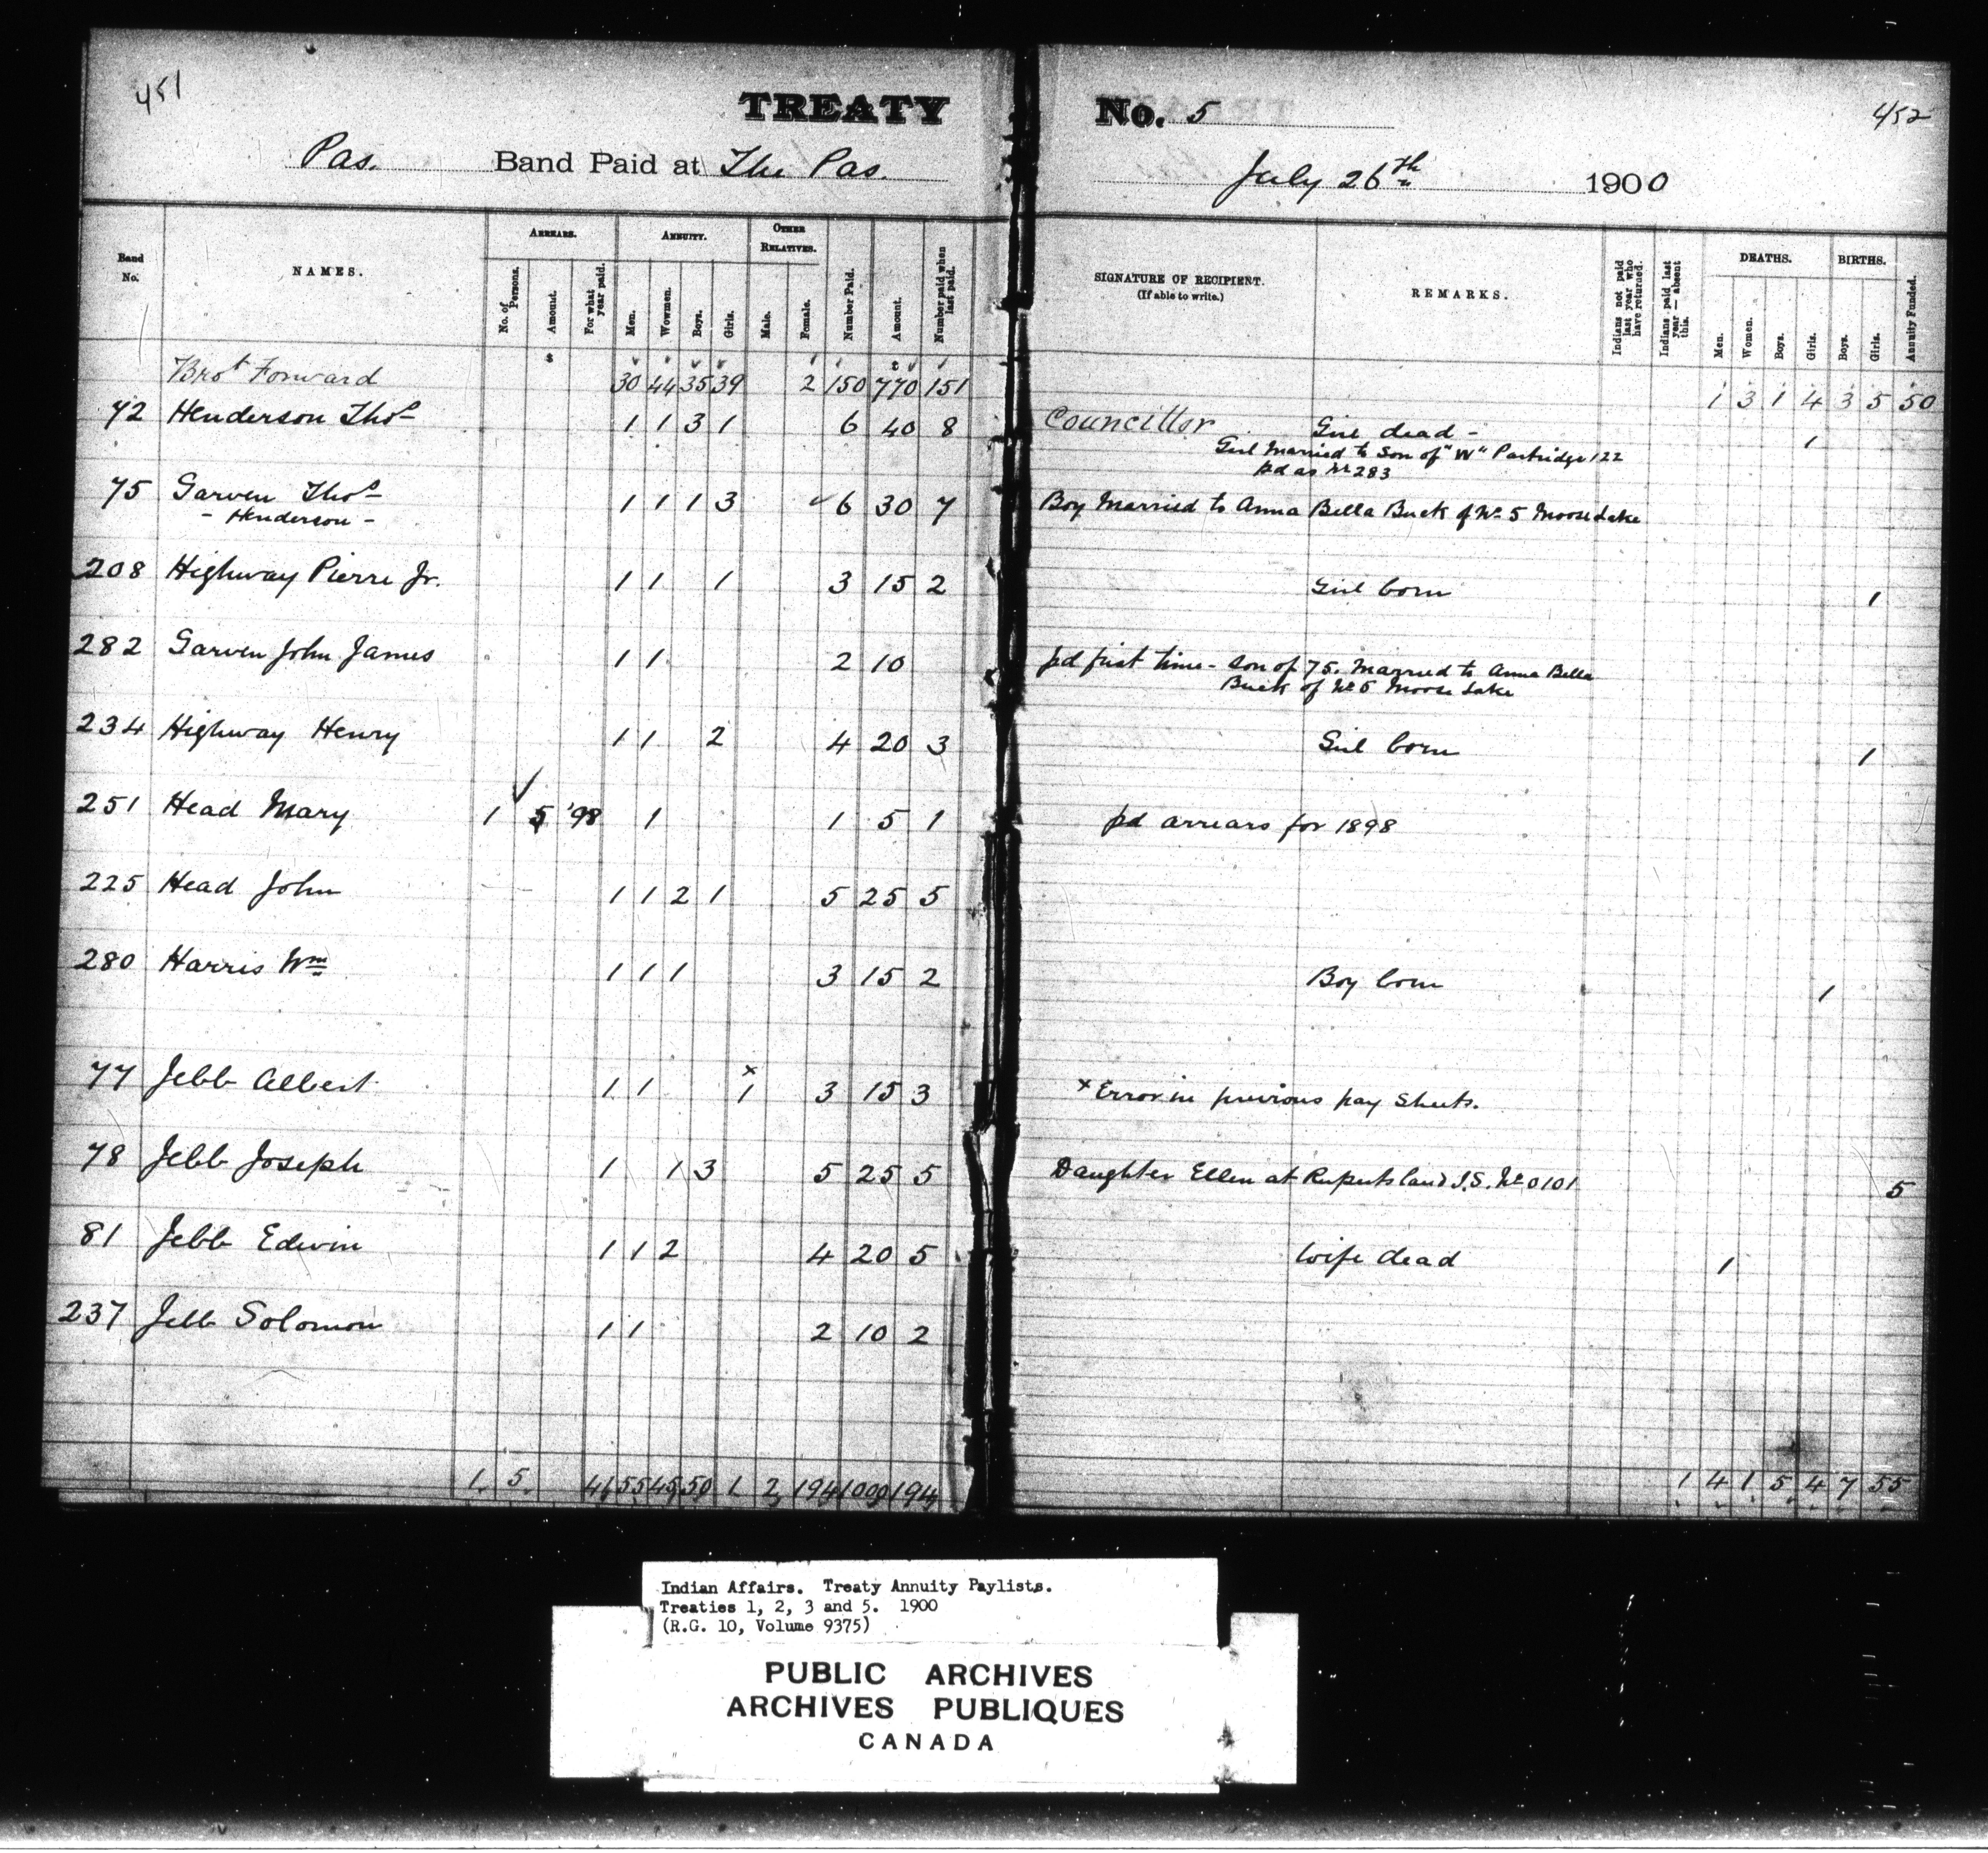 451
TREATY No. 5
452
Pas. Band Paid at The Pas. July 26th 1900
Band No.
NAMES.
ARREARS.
No. of Persons.
Amount.
For what year paid.
ANNUITY.
Men.
Women.
Boys.
Girls.
OTHER RELATIVES.
Male.
Female.
Number Paid.
Amount.
Number paid when last paid.
SIGNATURE OF RECIPIENT.
(If able to write.)
REMARKS.
Indians not paid last year who have returned.
Indians paid last year — absent this.
DEATHS.
Men.
Women.
Boys.
Girls.
BIRTHS.
Boys.
Girls.
Annuity Funded.
$
Brot Forward 30 44 35 39 2 150 770 151 1 3 1 4 3 5 50
72 Henderson Thos 1 1 3 1 6 40 8 Councillor Girl dead - 1
Girl Married to Son of "W" Partridge 122
pd as No 283
75 Garven Thos 1 1 1 3 6 30 7 Boy Married to Anna Bella Buck of No 5 Moose Lake
- Henderson -
208 Highway Pierre Jr. 1 1 1 3 15 2 Girl born 1
282 Garven John James 1 1 2 10 pd first time - Son of 75. Married to Anna Bella
Buck of No 5 Moose Lake
234 Highway Henry 1 1 2 4 20 3 Girl born 1
251 Head Mary 1 5 '98 1 1 5 1 pd arrears for 1898
225 Head John 1 1 2 1 5 25 5
280 Harris Wm 1 1 1 3 15 2 Boy born 1
77 Jebb Albert 1 1 x 1 3 15 3 x Error in previous pay sheets.
78 Jebb Joseph 1 1 3 5 25 5 Daughter Ellen at Rupertsland I.S. No 0101 5
81 Jebb Edwin 1 1 2 4 20 5 Wife dead 1
237 Jebb Solomon 1 1 2 10 2
1 5 41 55 45 50 1 2 194 1000 194 1 4 1 5 4 7 55
Indian Affairs. Treaty Annuity Paylists.
Treaties 1, 2, 3 and 5. 1900
(R.G. 10, Volume 9375)
PUBLIC ARCHIVES
ARCHIVES PUBLIQUES
CANADA